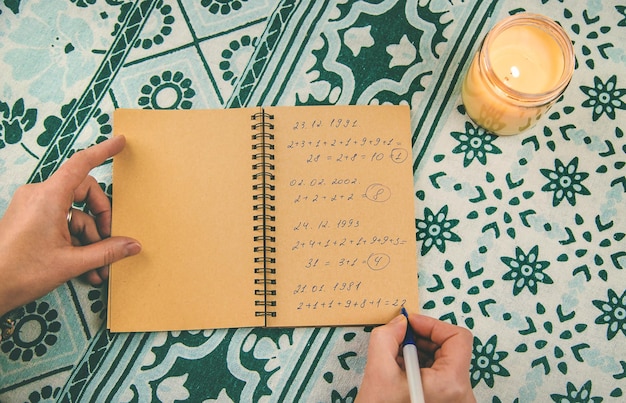 23.12.1991
2+3+1+2+1+9+9+1=
28 = 2+8 = 10 1
02.02.2002.
2+2+2+2 8
24.12.1993
2+4+1+2+1+9+9+3=
31 = 3+1= 4
21.01.1981
2+1+1+9+8+1=22